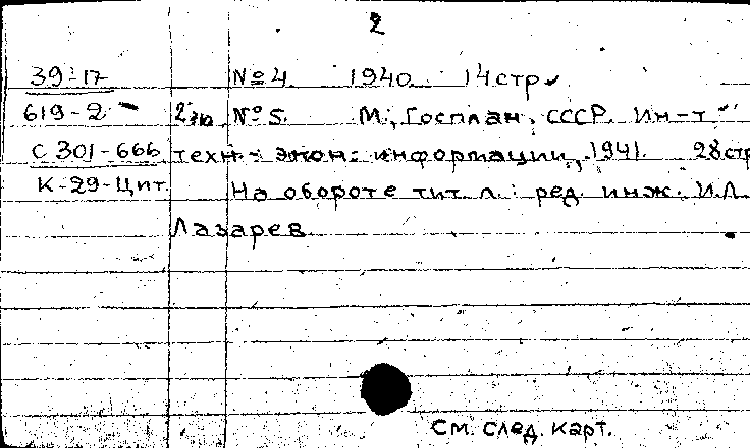 2
39-17 № 4. 1940. 14 стр
619-2 2 эк. № 5. М., Госплан СССР. Ин-т
С 301-666 техн.-экон. информации, 1941. 28 стр
К-29-Цит. На обороте тит. л.: ред. инж. И.Л.
Лазарев
См. след. карт.